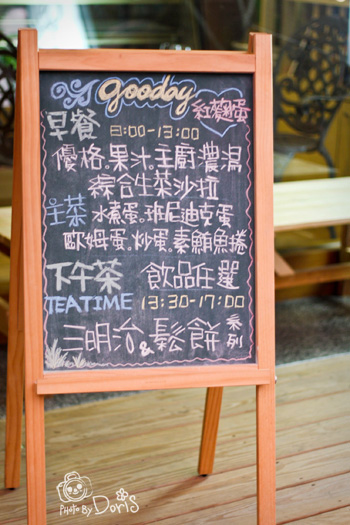 gooday
紅麴蛋
早餐 8:00-13:00
優格。果汁。主廚濃湯
綜合生菜沙拉
主菜 水煮蛋。班尼迪克蛋
歐姆蛋。炒蛋。素鮪魚捲
下午茶 飲品任選
TEATIME 13:30-17:00
三明治&鬆餅系列
PHOTO BY Doris